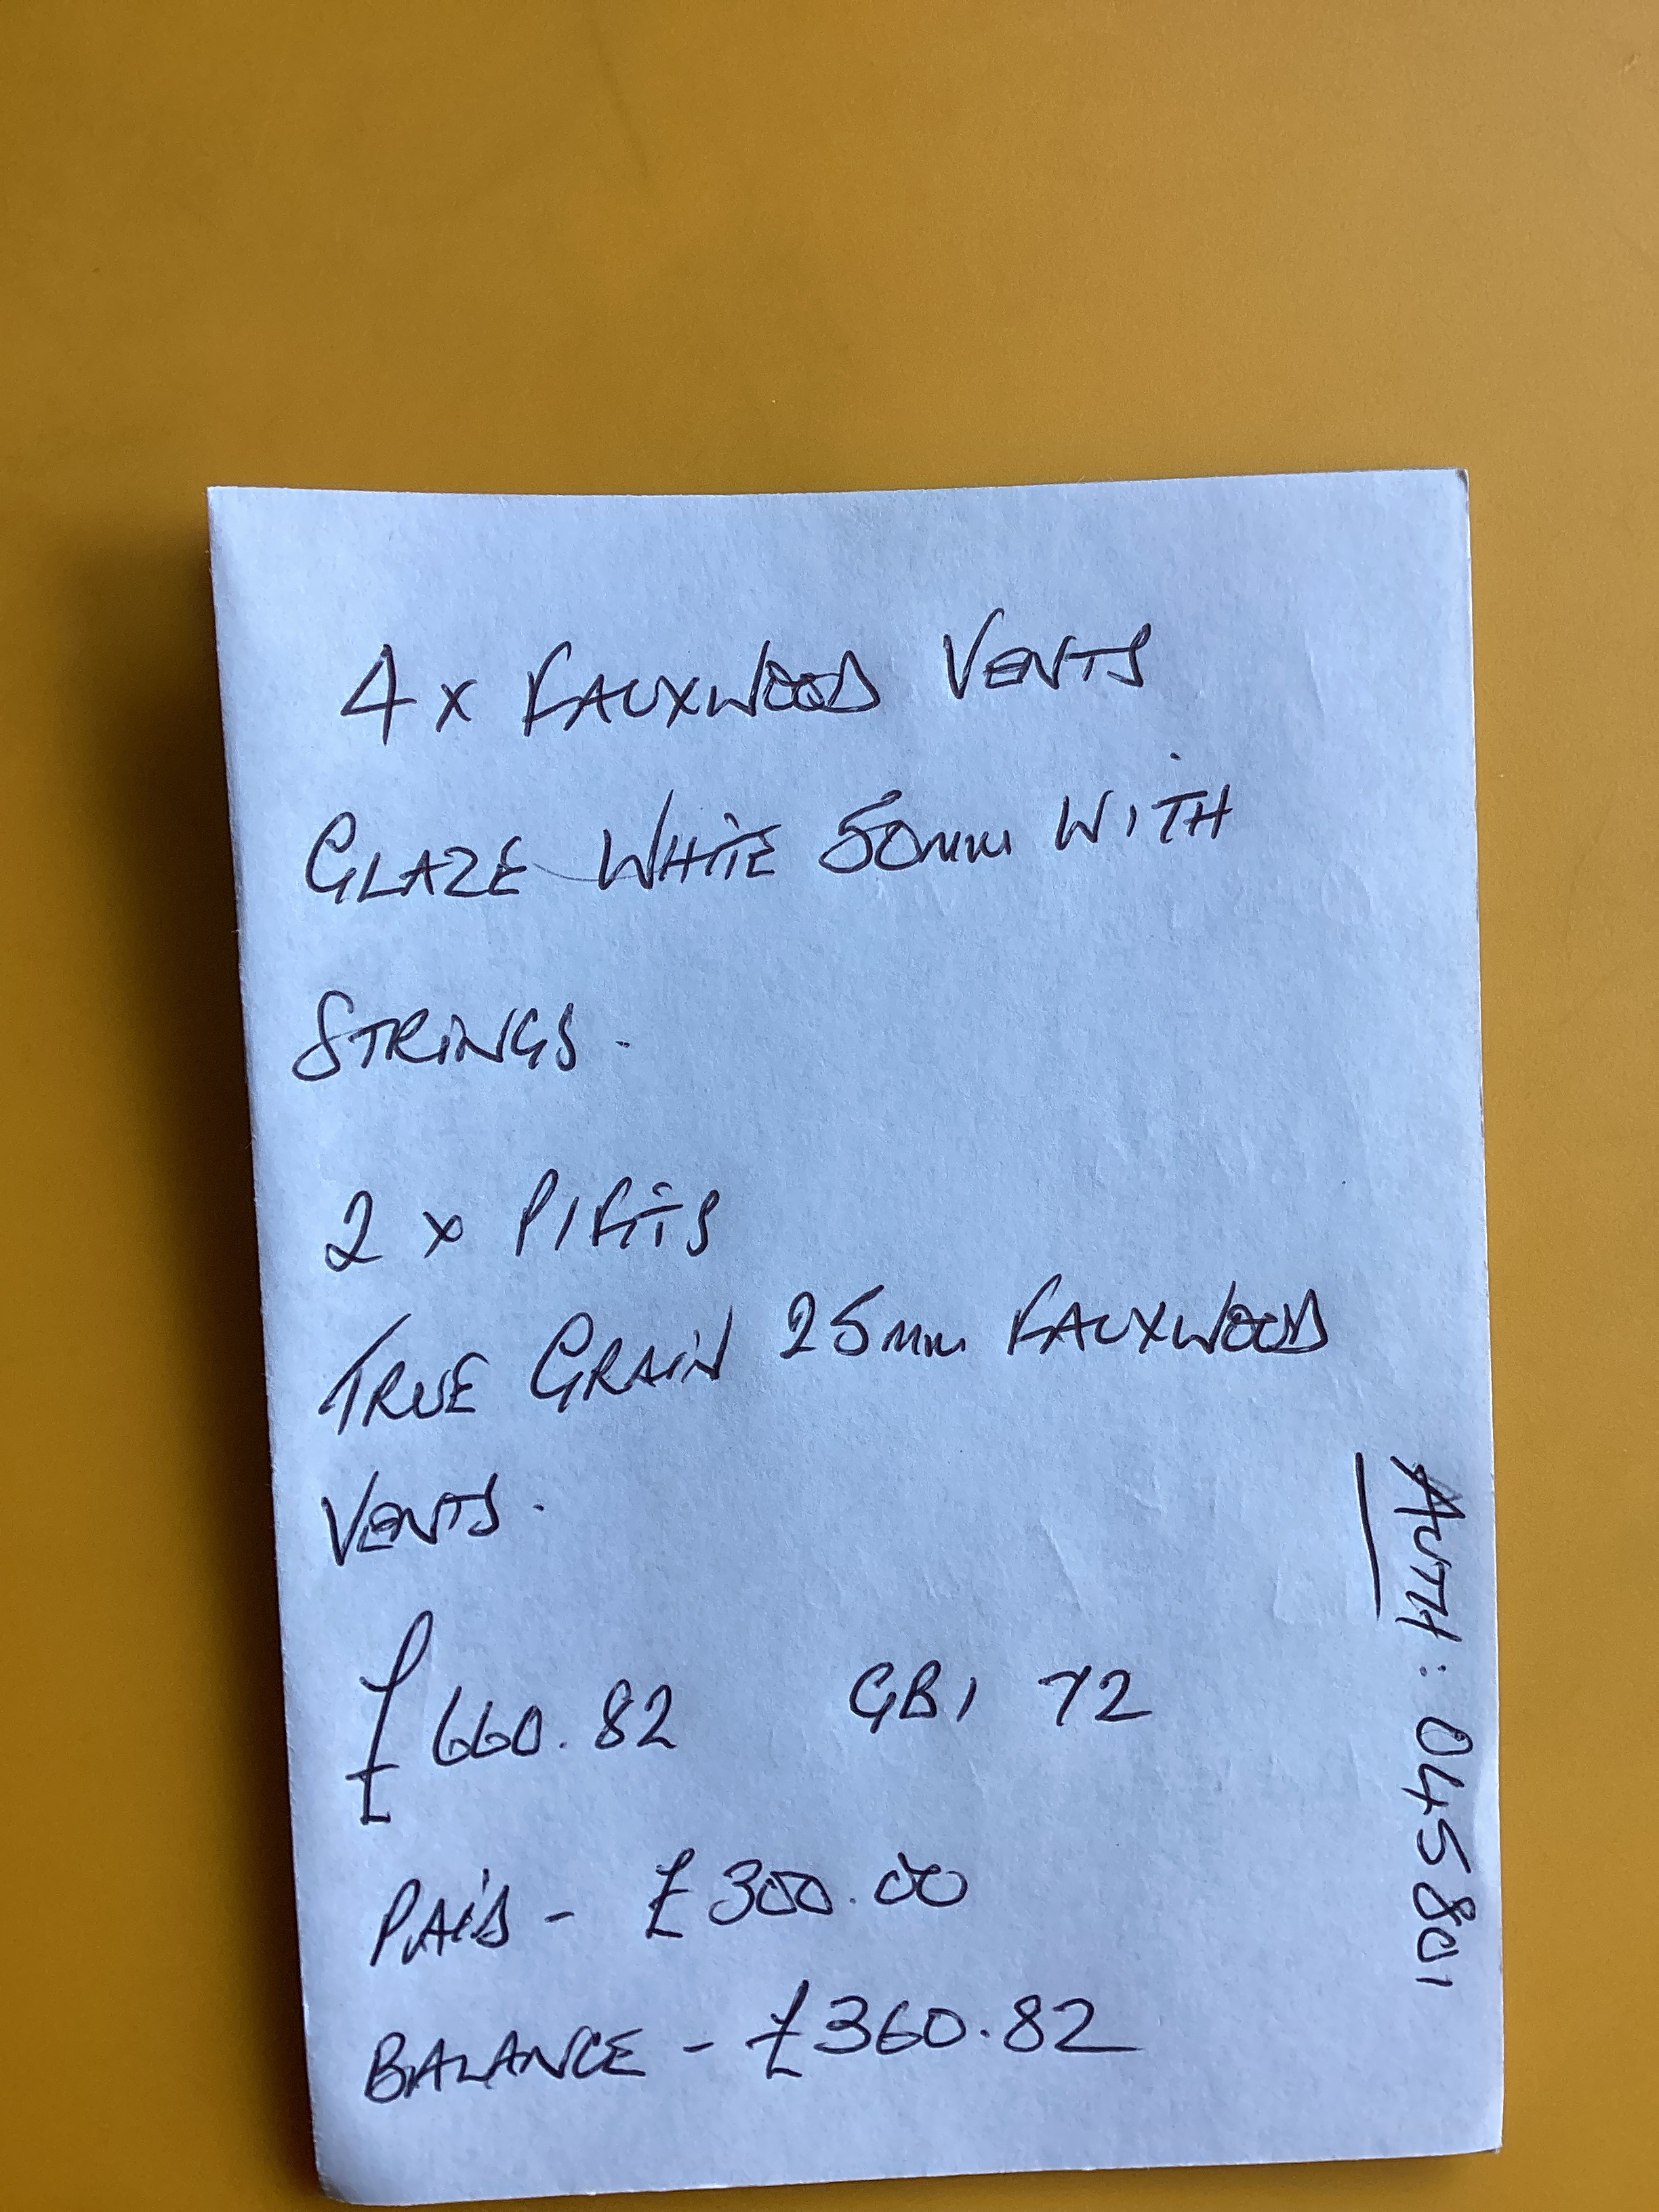 4 x FAUXWOOD VENTS
GLAZE WHITE 50mm WITH
STRINGS.
2 x PIFITS
TRUE GRAIN 25mm FAUXWOOD
VENTS.
£660.82 GBI 72
PAID - £300.00
BALANCE - £360.82
AUTH: 045801